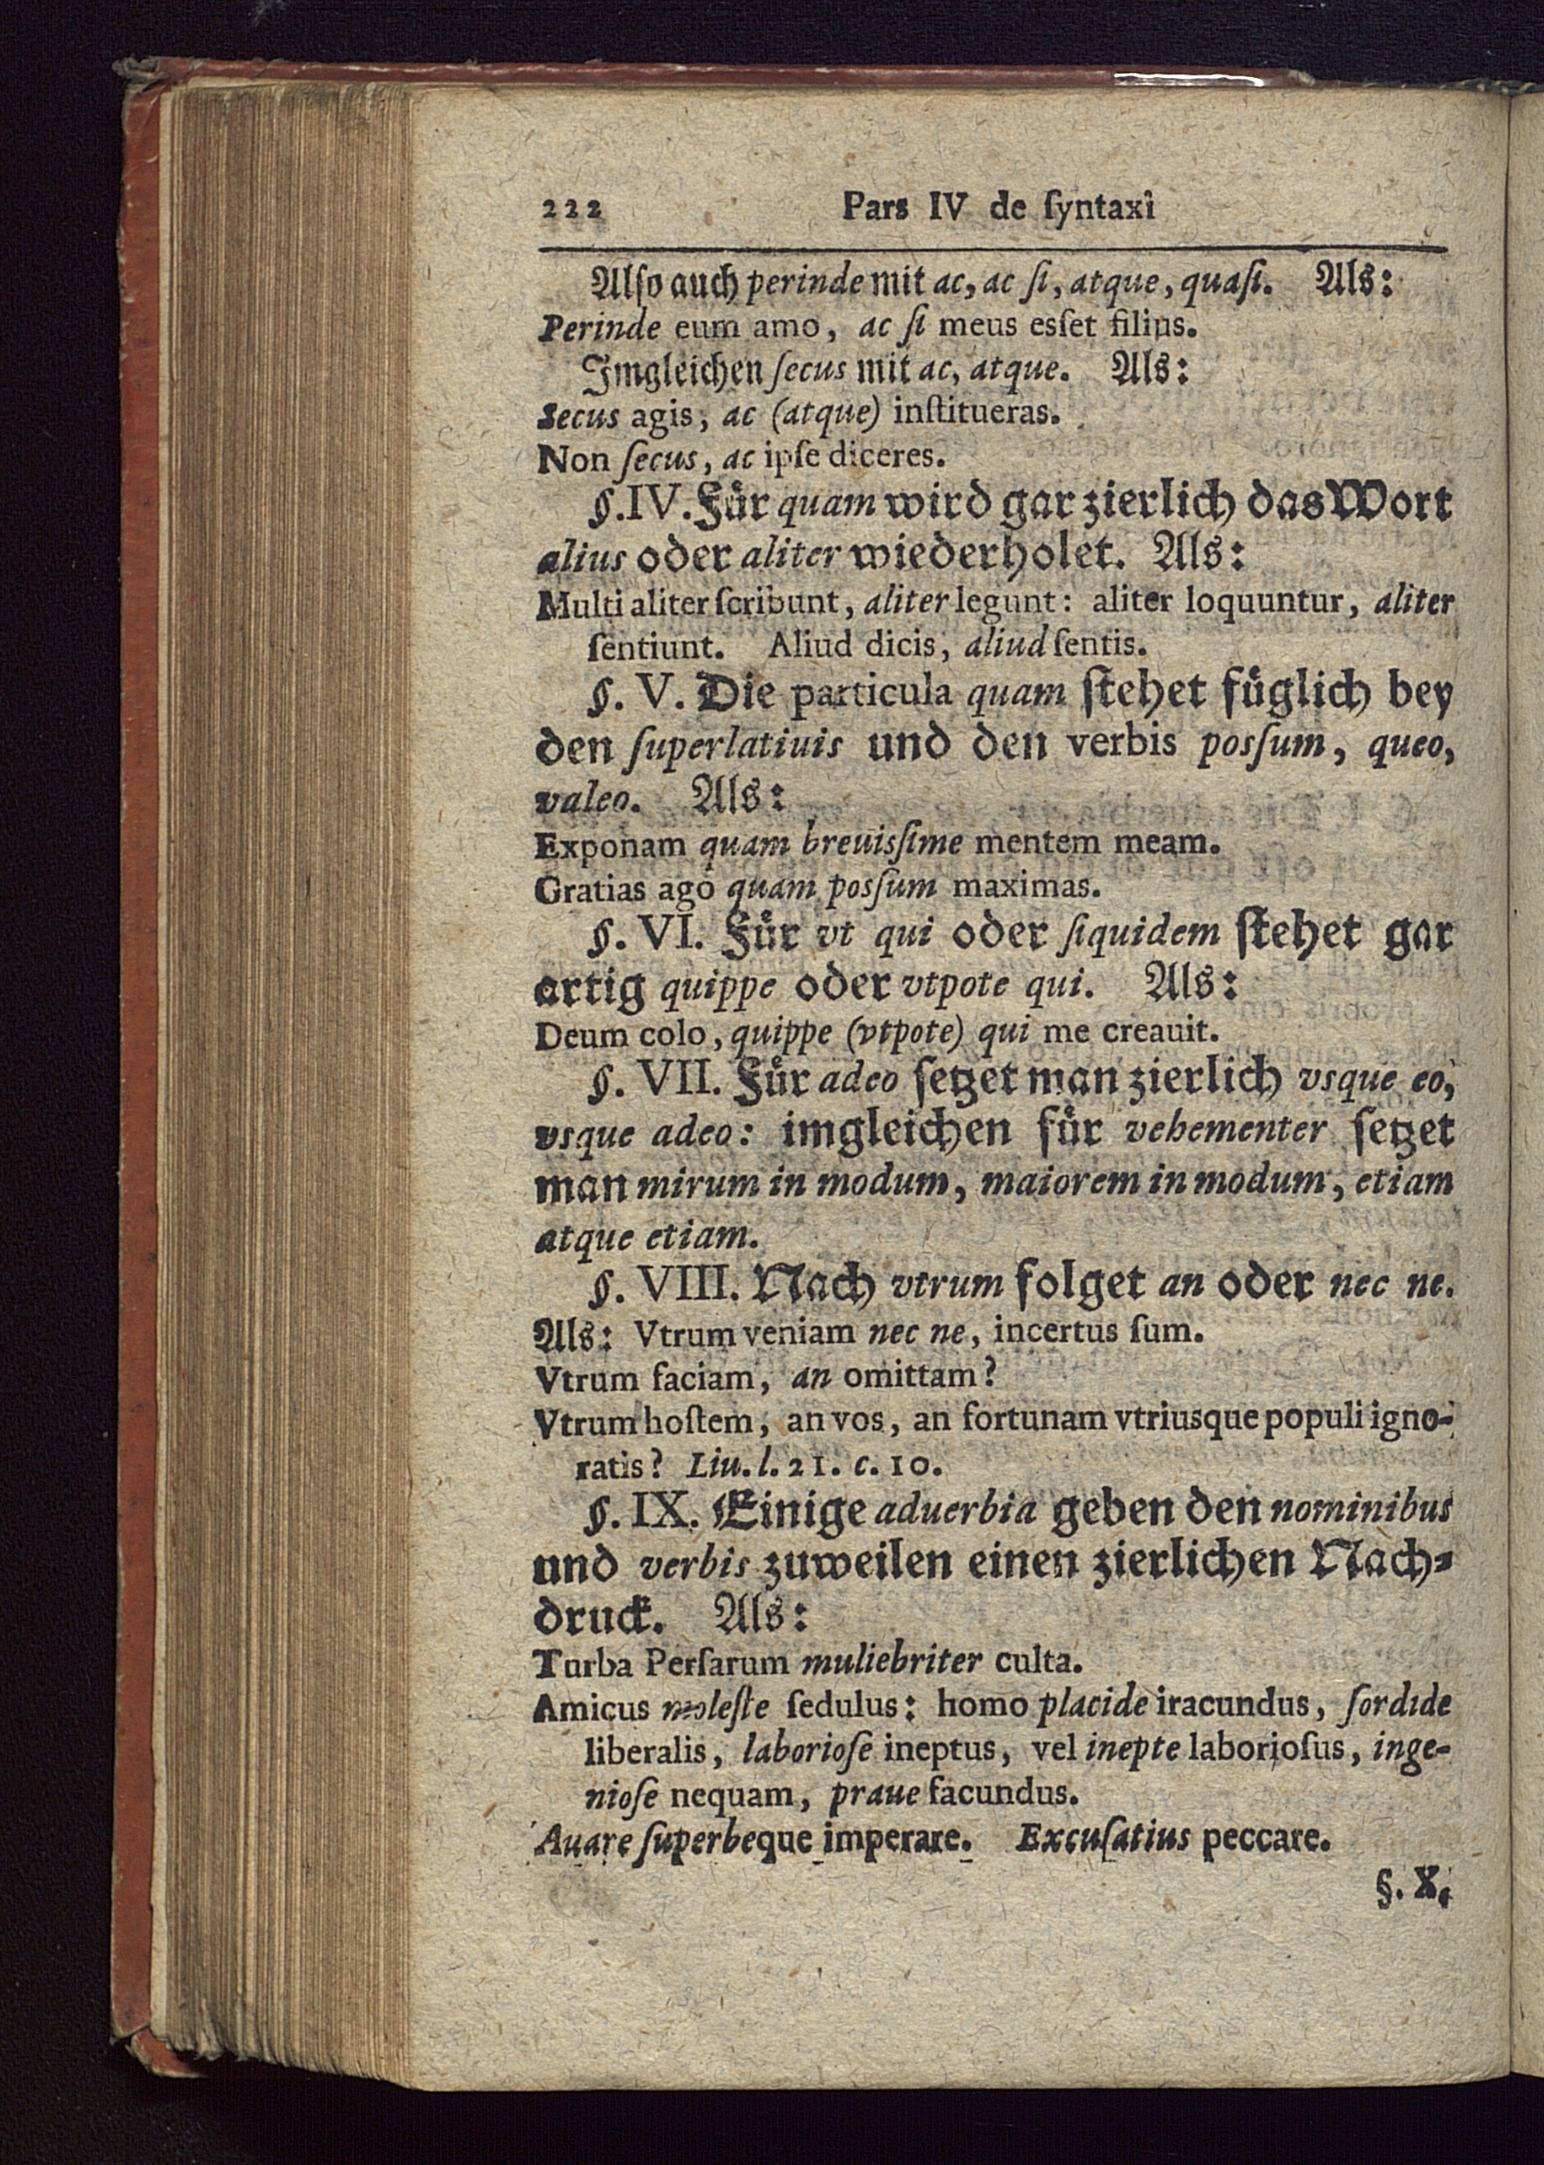 222 Pars IV de ſyntaxi
Alſo auch perinde mit ac, ac ſi, atque, quaſi. Als:
Perinde eum amo, ac ſi meus esſet filius.
Imgleichen ſecus mit ac, atque. Als:
Secus agis, ac (atque) inſtitueras.
Non ſecus, ac ipſe diceres.
§. IV. Fuͤr quam wird gar zierlich das Wort
alius oder aliter wiederholet. Als:
Multi aliter ſcribunt, aliter legunt: aliter loquuntur, aliter
ſentiunt. Aliud dicis, aliud ſentis.
§. V. Die particula quam ſtehet fuͤglich bey
den ſuperlatiuis und den verbis posſum, queo,
valeo. Als:
Exponam quam breuisſime mentem meam.
Gratias ago quam posſum maximas.
§. VI. Fuͤr vt qui oder ſiquidem ſtehet gar
artig quippe oder vtpote qui. Als:
Deum colo, quippe (vtpote) qui me creauit.
§. VII. Fuͤr adeo ſetzet man zierlich vsque eo,
vsque adeo: imgleichen fuͤr vehementer ſetzet
man mirum in modum, maiorem in modum, etiam
atque etiam.
§. VIII. Nach vtrum folget an oder nec ne.
Als: Vtrum veniam nec ne, incertus ſum.
Vtrum faciam, an omittam?
Vtrum hoſtem, an vos, an fortunam vtriusque populi igno-
ratis? Liu. l. 21. c. 10.
§. IX. Einige aduerbia geben den nominibus
und verbis zuweilen einen zierlichen Nach-
druck. Als:
Turba Perſarum muliebriter culta.
Amicus moleſte ſedulus: homo placide iracundus, ſordide
liberalis, laborioſe ineptus, vel inepte laborioſus, inge-
nioſe nequam, praue facundus.
Auare ſuperbeque imperare. Excuſatius peccare.
§. X.